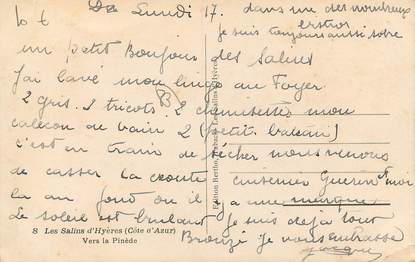 Lundi 17. dans une des nombreux
je suis toujours aussi sobre
un petit Bonjour des Salins
J'ai lavé mon linge au Foyer
2 gris. 2 tricots. 2 chemisettes mon
caleçon de bain 2 (petit bateau)
c'est en train de sécher nous venons
de casser la croute cuisinier Guerin moi
la au fond où il a une marque
Le soleil est brulant je suis déjà tout
Bronzé je vous embrasse
8 Les Salins d'Hyères (Côte d'Azur)
Vers la Pinède